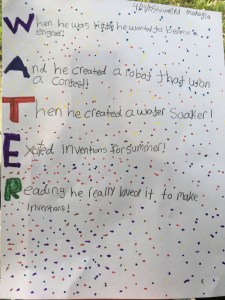 When he was little he wanted to become a
engineer!
And he created a robot that won
a contest!
Then he created a water Soaker!
Excited inventions for summer!
Reading he really loved it to make
inventions!